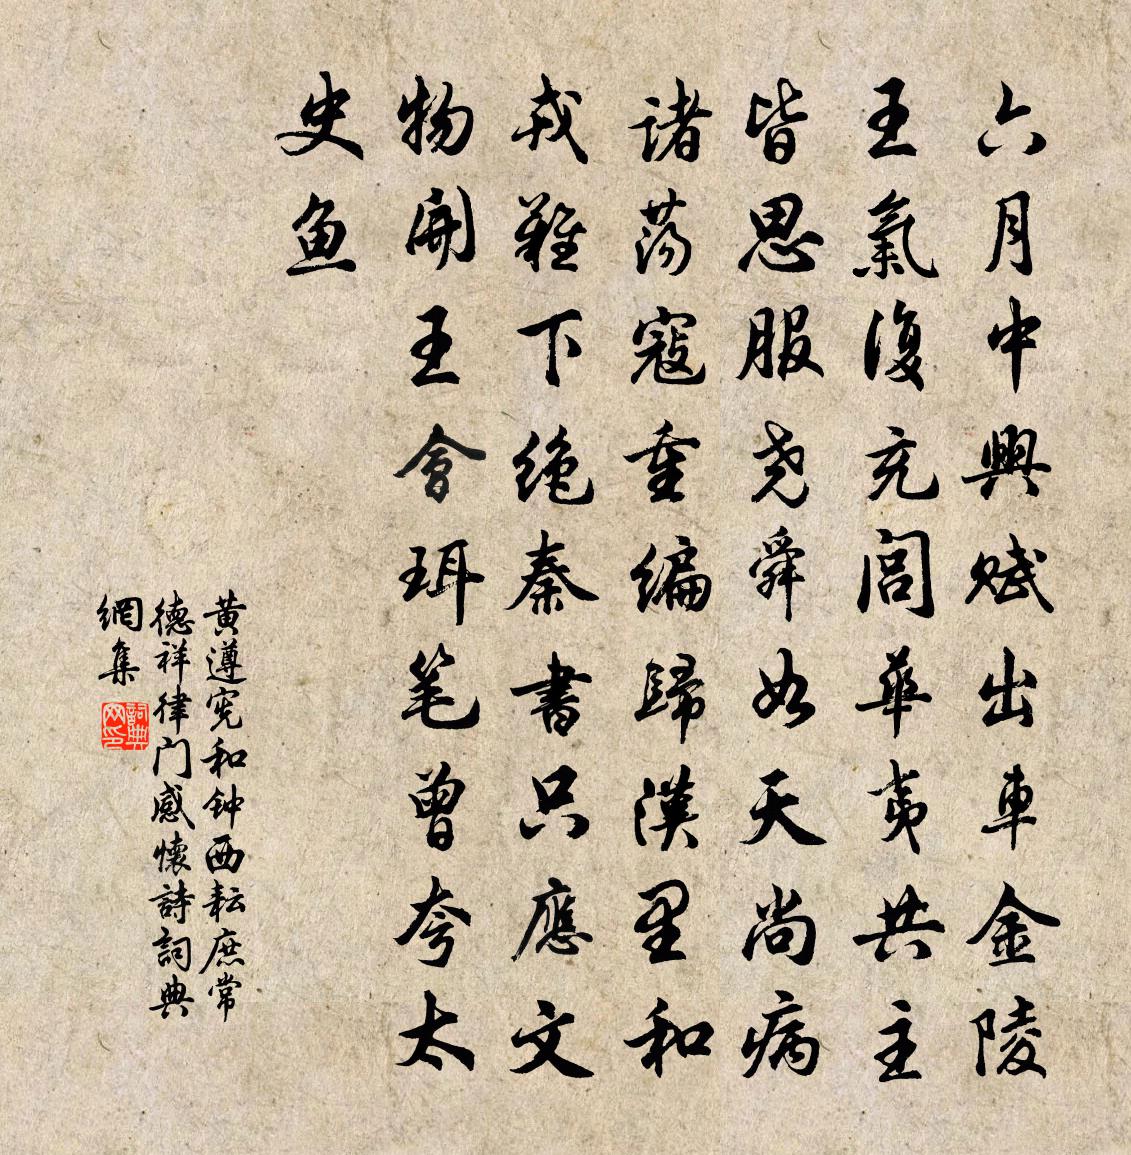 六月中興赋出車金陵
王氣復充閭華夷共主
皆思服尧舜如天尚病
诸荡寇重编歸漢里和
戎難下绝秦書只應文
物開王會珥笔曾夸太
史鱼
黄遵宪和钟西耘庶常
德祥律门感懷詩詞典
網集
詞典网印